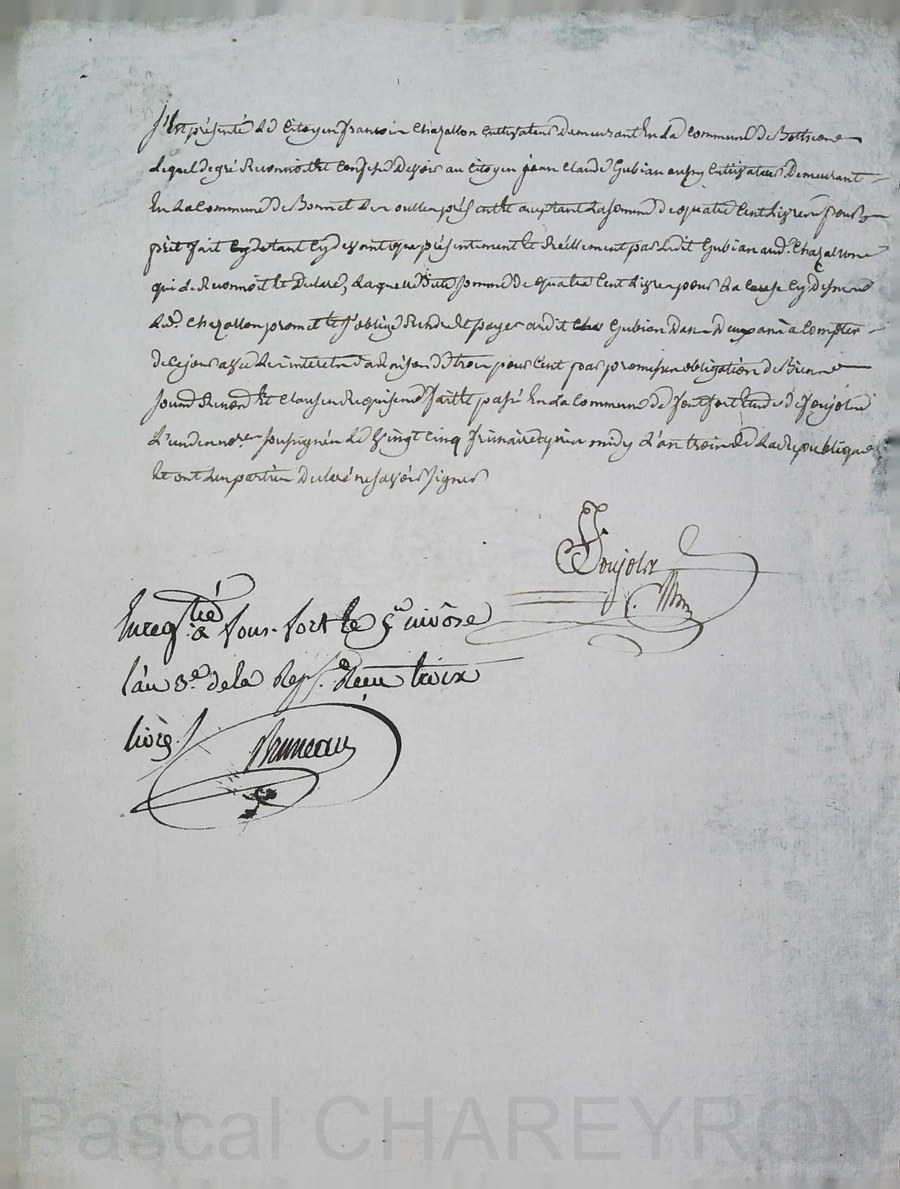 S'est présenté le Citoyen francois Chazallon Cultivateur Demeurant En la Commune de Botheone
Lequel de gré Reconnoit et Confesse Devoir au Citoyen jean Claude Gubian aussy Cultivateur Demeurant
En la Commune de Bonnet Les oulles présent et acceptant la somme de quatre Cent livres pour
prêt fait Cy devant présentement et Réellement par ledit Gubian aud. Chazallon
qui le Reconnoit et Declare, laquelle ditte somme de quatre Cent livres pour la Cause Cy dessus
led. Chazallon promet et s'oblige Rendre et payer audit Gubian Dans Deux ans a Compter
de Ce jour avec les interets a Raison de trois pour Cent par promission obligation de Biens
soumis Renond et Clauses Requises fait et passé En la Commune de fontfort Etude de Soujolis
L'un de nore soussignés Le Vingt Cinq frimaire après midy L'an trois de la Republique
Et ont Les parties Declaré ne savoir signer
Soujolis
Enregtré a fons-fort le 5 nivôse
l'an 3e de la Rep. Recu trois
livres
Bruneau
Pascal CHAREYRON